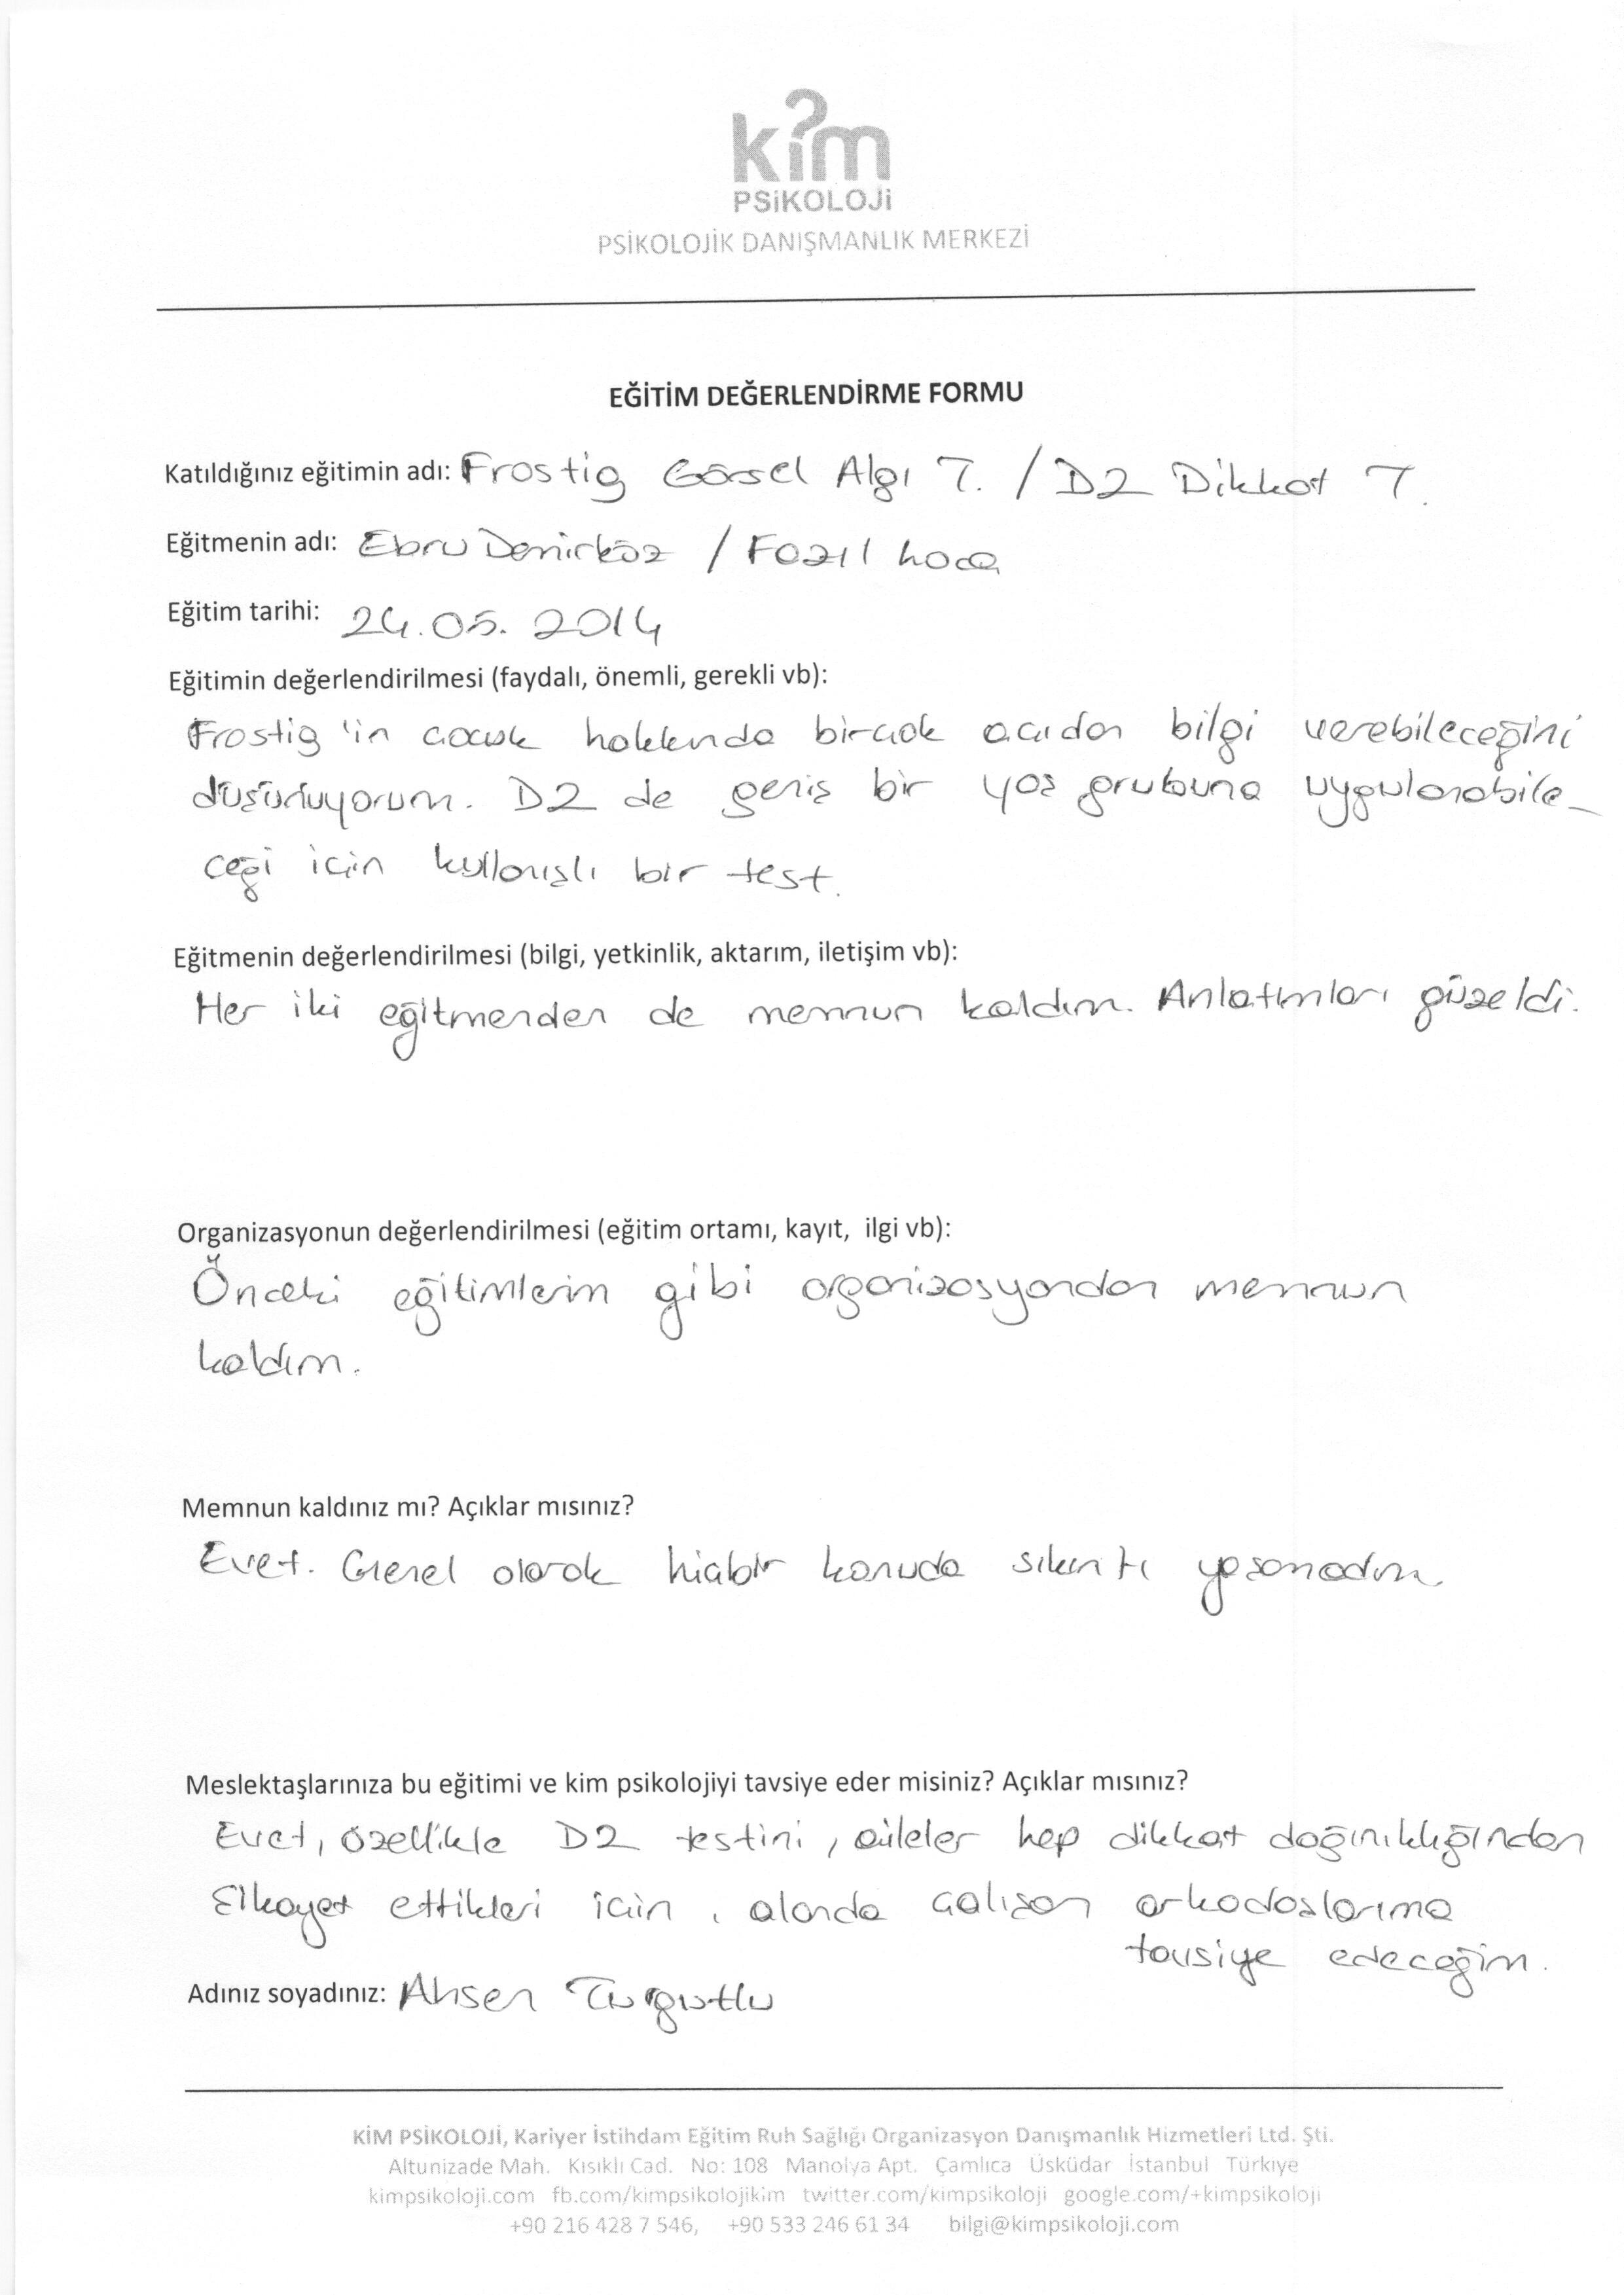 kim
PSİKOLOJİ
PSİKOLOJİK DANIŞMANLIK MERKEZİ
EĞİTİM DEĞERLENDİRME FORMU
Katıldığınız eğitimin adı: Frostig Görsel Algı T. / D2 Dikkat T.
Eğitmenin adı: Ebru Demirköz / Fazıl hoca
Eğitim tarihi: 24.05.2014
Eğitimin değerlendirilmesi (faydalı, önemli, gerekli vb):
Frostig 'in çocuk hakkında birçok açıdan bilgi verebileceğini
düşünüyorum. D2 de geniş bir yaş grubuna uygulanabile-
ceği için kullanışlı bir test.
Eğitmenin değerlendirilmesi (bilgi, yetkinlik, aktarım, iletişim vb):
Her iki eğitmenden de memnun kaldım. Anlatımları güzeldi.
Organizasyonun değerlendirilmesi (eğitim ortamı, kayıt, ilgi vb):
Önceki eğitimlerim gibi organizasyondan memnun
kaldım.
Memnun kaldınız mı? Açıklar mısınız?
Evet. Genel olarak hiçbir konuda sıkıntı yaşamadım.
Meslektaşlarınıza bu eğitimi ve kim psikolojiyi tavsiye eder misiniz? Açıklar mısınız?
Evet, özellikle D2 testini, aileler hep dikkat dağınıklığından
şikayet ettikleri için, alanda çalışan arkadaşlarıma
tavsiye edeceğim.
Adınız soyadınız: Ahsen Turgutlu
KİM PSİKOLOJİ, Kariyer İstihdam Eğitim Ruh Sağlığı Organizasyon Danışmanlık Hizmetleri Ltd. Şti.
Altunizade Mah. Kısıklı Cad. No: 108 Manolya Apt. Çamlıca Üsküdar İstanbul Türkiye
kimpsikoloji.com fb.com/kimpsikolojikim twitter.com/kimpsikoloji google.com/+kimpsikoloji
+90 216 428 7 546, +90 533 246 61 34 bilgi@kimpsikoloji.com